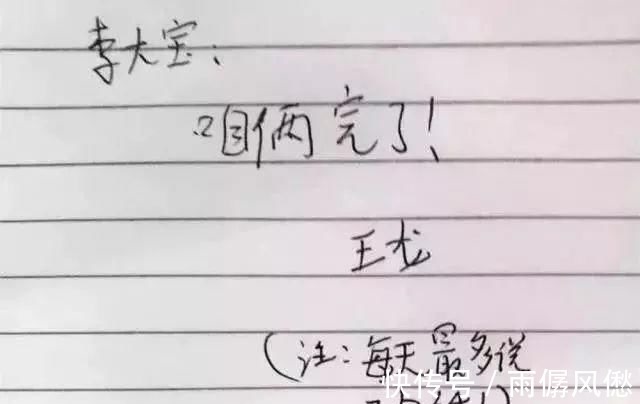 李大宝:
咱俩完了!
王龙
(注:每天最多说
快传号/雨孱风僽